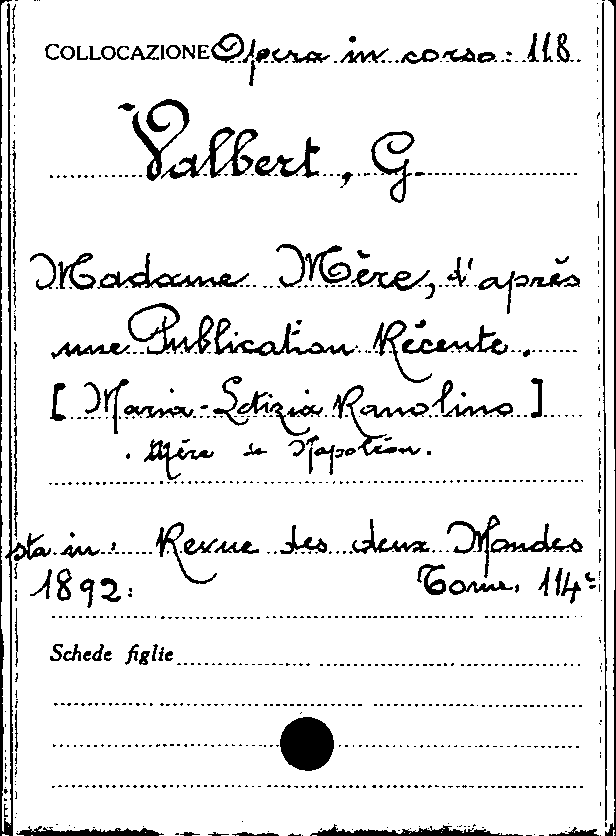 COLLOCAZIONE Opera in corso. 118
Valbert, G.
Madame Mère, d'après
une Publication Récente.
[Maria-Letizia Ramolino]
. Mère de Napoléon.
sta in: Revue des deux Mondes
1892. Tome. 114º
Schede figlie